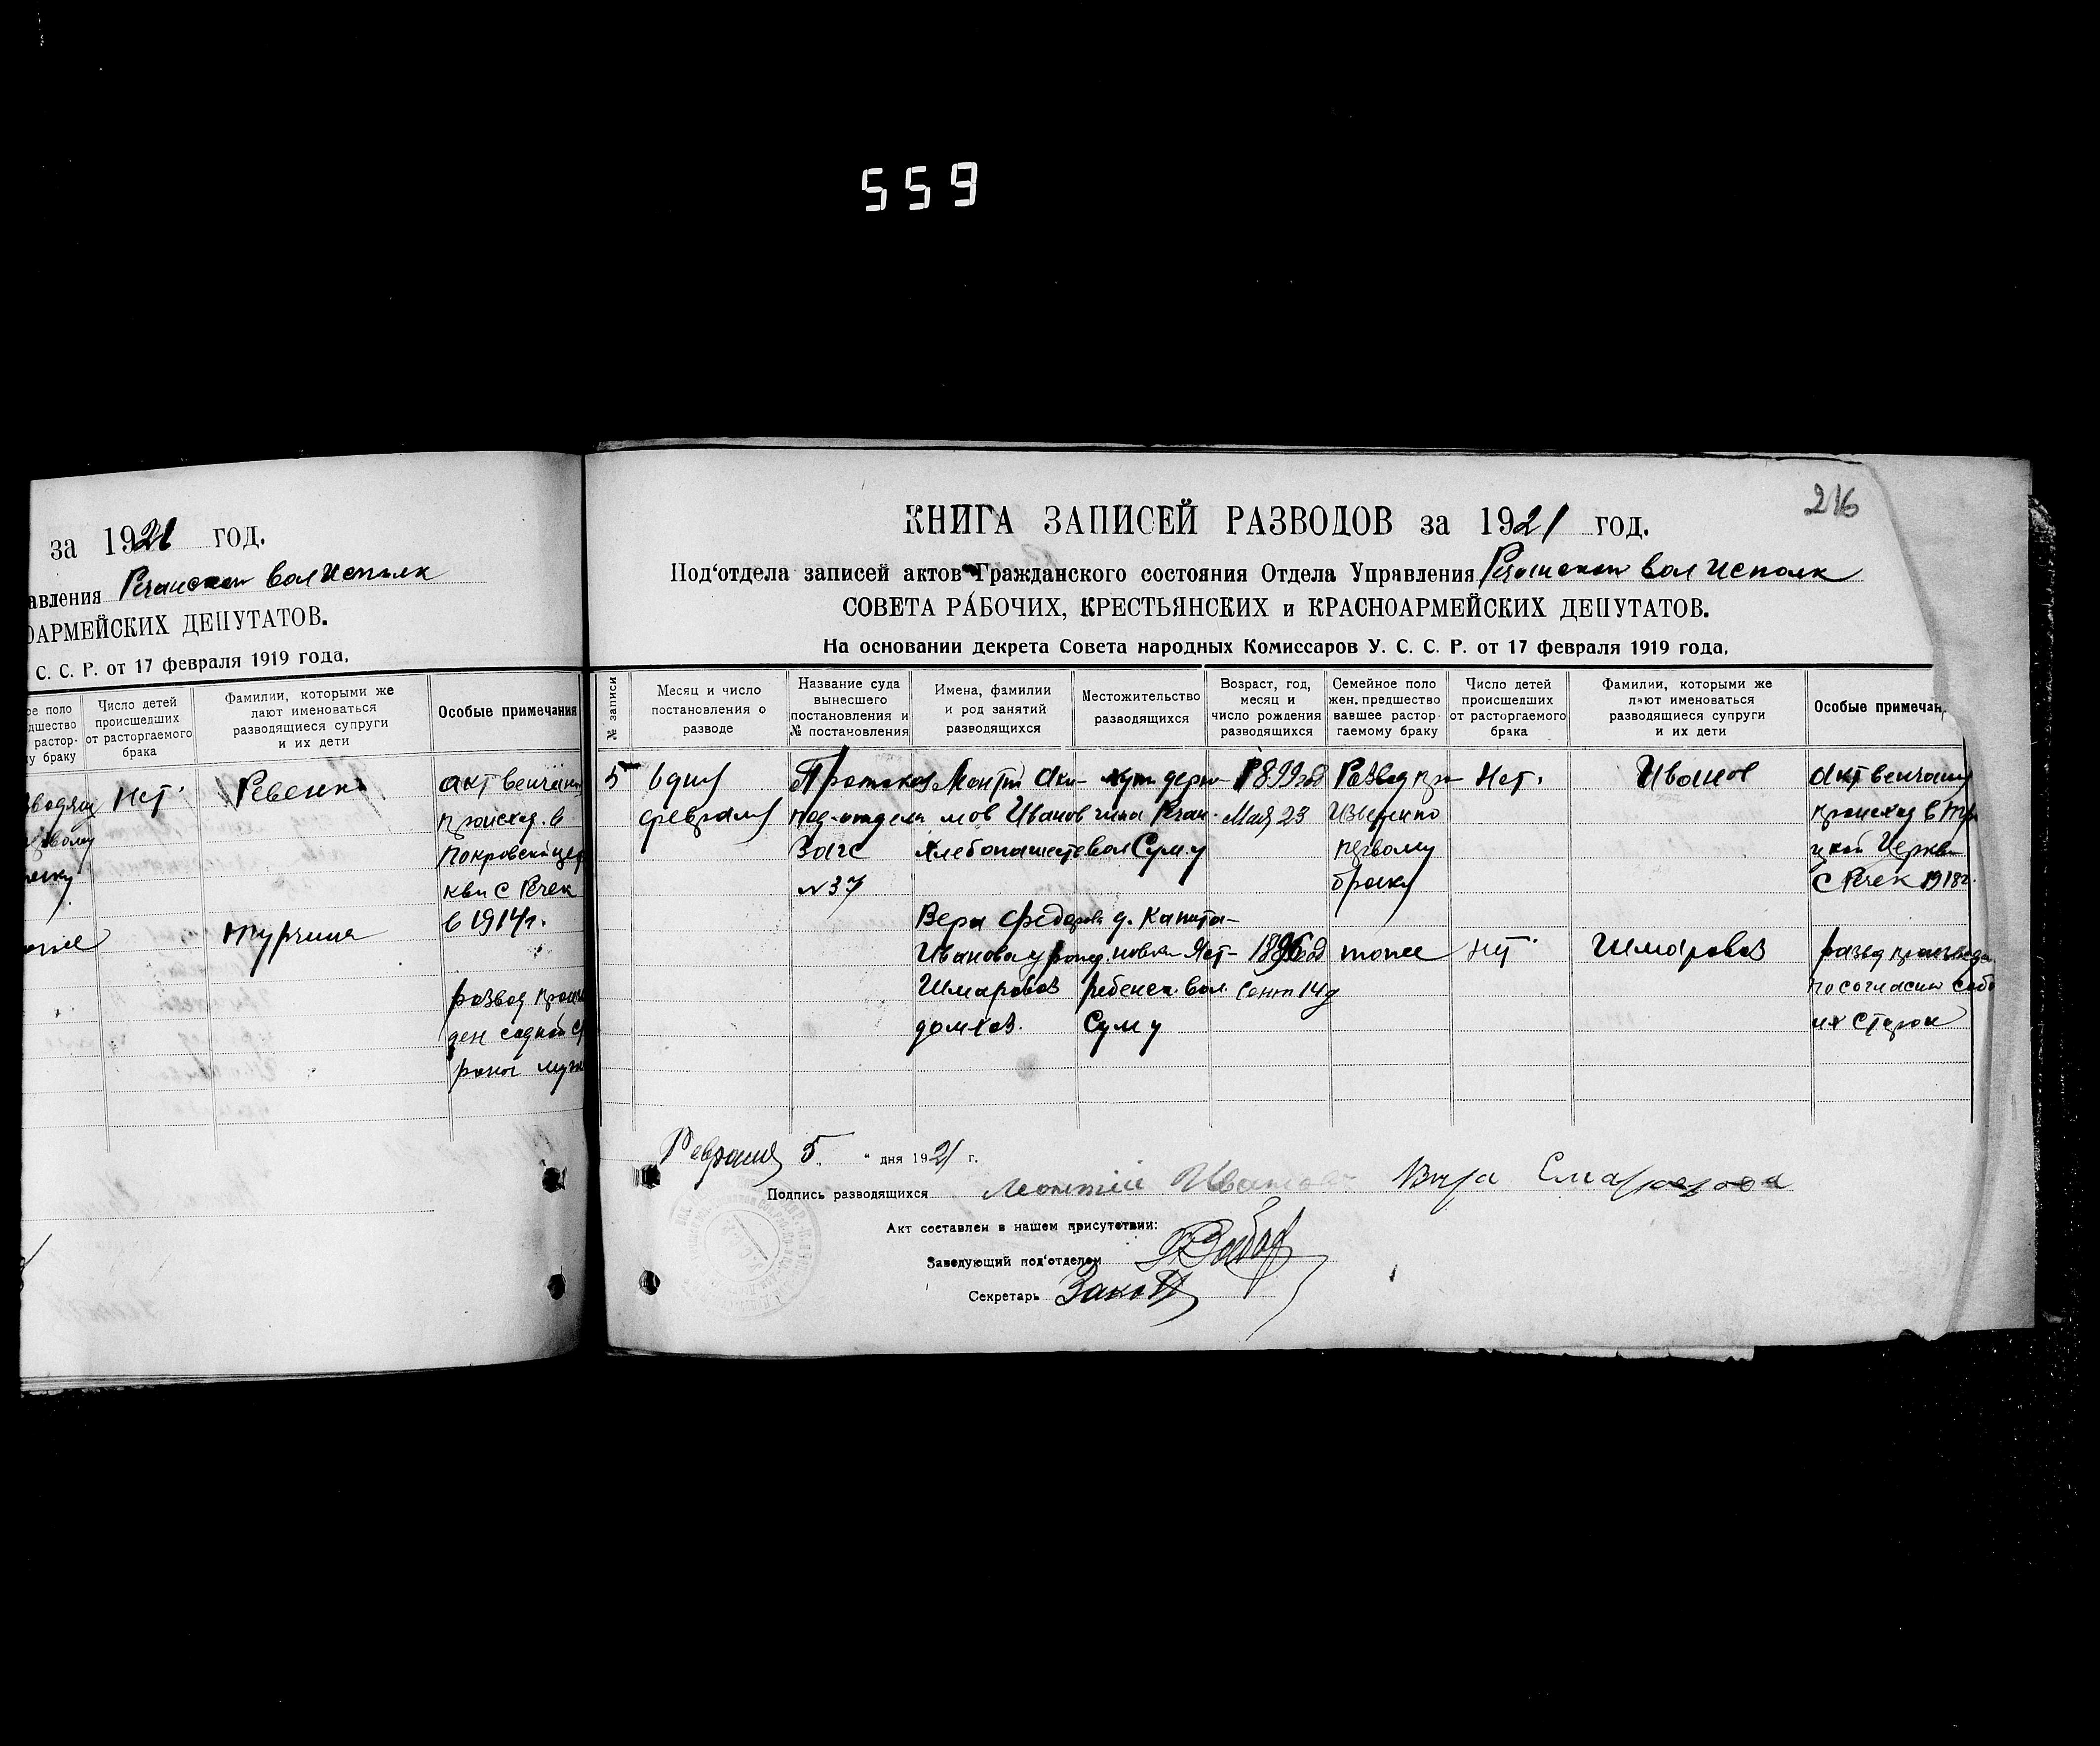 559
за 1921 год.
авления Речанском волИсполк
ОАРМЕЙСКИХ ДЕПУТАТОВ.
С. С. Р. от 17 февраля 1919 года,
ое поло
дшество
растор-
у браку
Число детей
происшедших
от расторгаемого
брака
Фамилии, которыми же
лают именоваться
разводящиеся супруги
и их дети
Особые примечания
Нет.
Ревенко
акт венчан
происход. в
Покровской цер
кви С Речек
в 1914г.
Турчина
развод произ
ден с одной с
роны муж
216
КНИГА ЗАПИСЕЙ РАЗВОДОВ за 1921 год.
Под'отдела записей актов Гражданского состояния Отдела Управления Речанском вол Исполк
СОВЕТА РАБОЧИХ, КРЕСТЬЯНСКИХ и КРАСНОАРМЕЙСКИХ ДЕПУТАТОВ.
На основании декрета Совета народных Комиссаров У. С. С. Р. от 17 февраля 1919 года,
№ записи
Месяц и число
постановления о
разводе
Название суда
вынесшего
постановления и
№ постановления
Имена, фамилии
и род занятий
разводящихся
Местожительство
разводящихся
Возраст, год,
месяц и
число рождения
разводящихся
Семейное поло
жен. предшество
вавшее растор-
гаемому браку
Число детей
происшедших
от расторгаемого
брака
Фамилии, которыми же
лают именоваться
разводящиеся супруги
и их дети
Особые примечан
5
февраля
Протокол
под-отдела
Загс
№ 37
Аки-
мов Иванов
хлебопашец
хут дерк-
чина Речан.
вол Сум. у
1899 год
Мая 23
Развод про
изведен по
первому
браку
Нет.
Иванов
Акт венчания
происход в Тро
цкой Церкви
С Речек 1918г.
Вера Федоровн
Иванова урожд.
Шмарова
домхоз.
д. Капита-
новка Яст-
ребенск. вол.
Сум у
1896 год
Сент 14 д
тоже
нет
Шмарова
развод произведен
по согласию обо
их Сторон
Февраля 5 " дня 1921 г.
Подпись разводящихся Леонтий Иванов Вера Смарова
Акт составлен в нашем присутствии:
Заведующий под'отделом
Секретарь